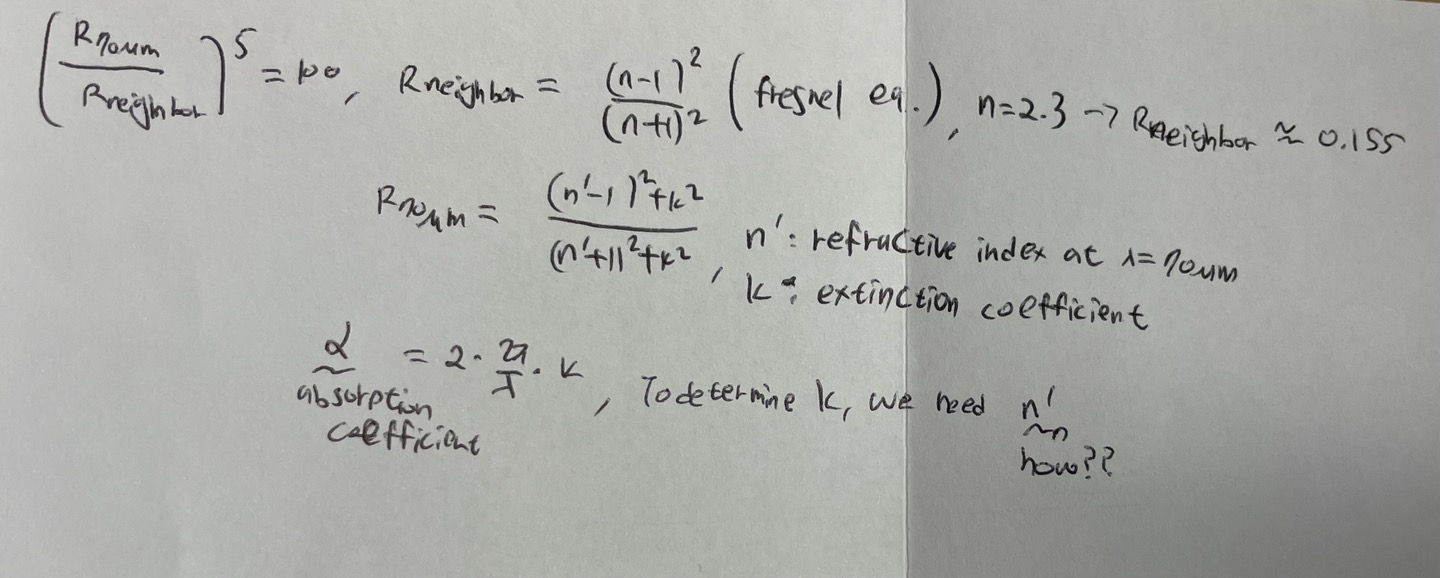 (R70um / Rneighbor)^5 = 100, Rneighbor = (n-1)^2 / (n+1)^2 (fresnel eq.), n=2.3 → Rneighbor ≈ 0.155
R70μm = ((n'-1)^2+k^2) / ((n'+1)^2+k^2), n': refractive index at λ=70um
k: extinction coefficient
α = 2·2π/λ·k, To determine k, we need n'
absorption
coefficient
how??